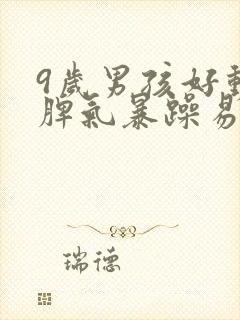 9歲男孩好動
脾氣暴躁易
瑞德